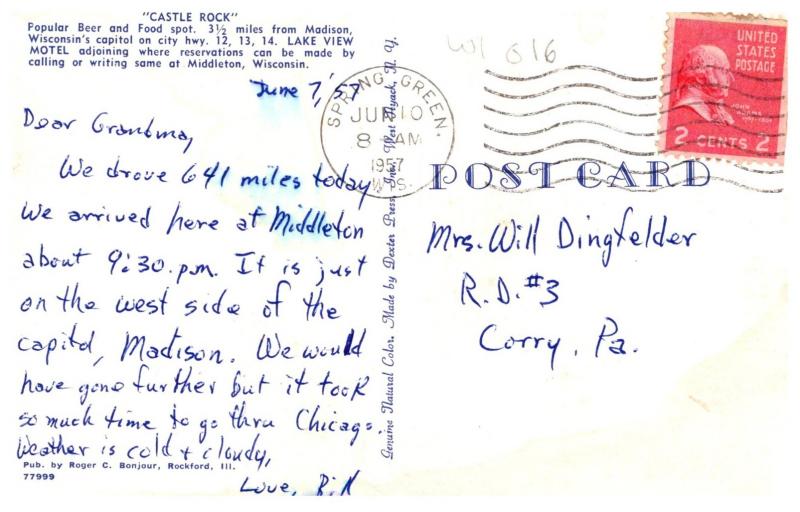 "CASTLE ROCK"
Popular Beer and Food spot. 3½ miles from Madison,
Wisconsin's capitol on city hwy. 12, 13, 14. LAKE VIEW
MOTEL adjoining where reservations can be made by
calling or writing same at Middleton, Wisconsin.
June 7, '57
Dear Grandma,
We drove 641 miles today
We arrived here at Middleton
about 9:30 p.m. It is just
on the west side of the
capitol, Madison. We would
have gone further but it took
so much time to go thru Chicago.
Weather is cold + cloudy,
Love, Bill
Pub. by Roger C. Bonjour, Rockford, Ill.
77999
Genuine Natural Color. Made by Dexter Press, Inc., West Nyack, N. Y.
WI 616
SPRING GREEN.
JUN 10
8 AM
1957
WIS.
UNITED
STATES
POSTAGE
JOHN
ADAMS
2 CENTS 2
POST CARD
Mrs. Will Dingfelder
R.D. #3
Corry, Pa.